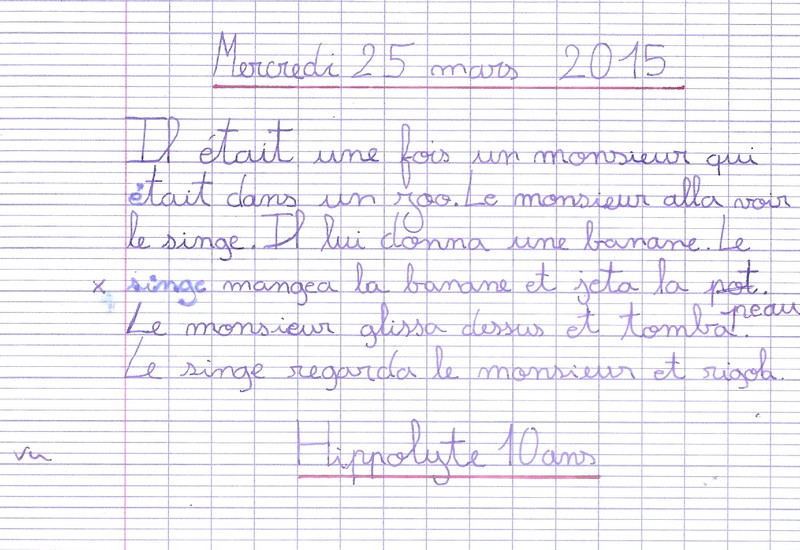 Mercredi 25 mars 2015
Il était une fois un monsieur qui
était dans un zoo. Le monsieur alla voir
le singe. Il lui donna une banane. Le
x singe mangea la banane et jeta la pot.
peau
Le monsieur glissa dessus et tomba.
Le singe regarda le monsieur et rigola.
Hippolyte 10 ans
vu